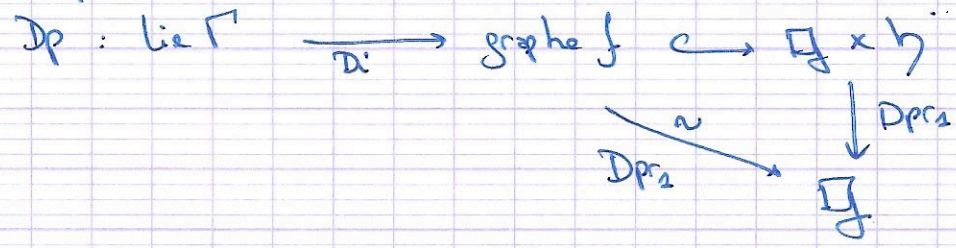 Dp : Lie Γ →(Di) graphe f ↪ 𝔤 × 𝔥
~ ↓ Dpr₁
Dpr₁
𝔤